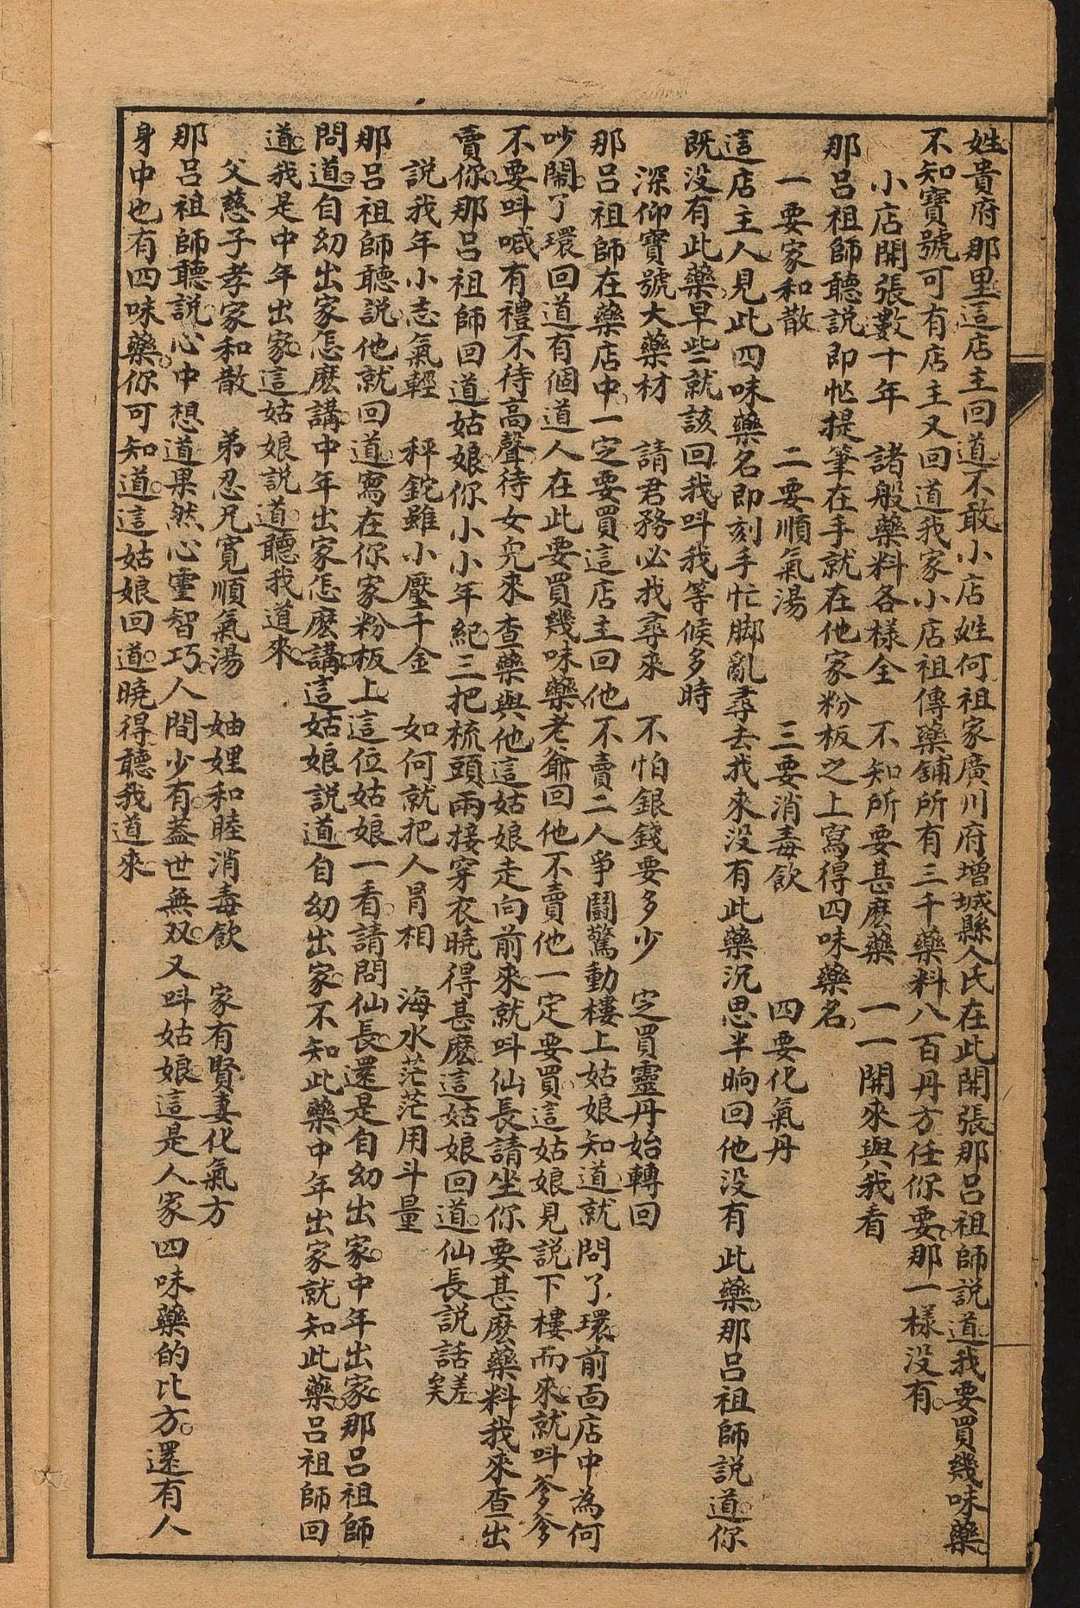 姓貴府那里這店主回道不敢小店姓何祖家廣川府增城縣人氏在此開張那呂祖師説道我要買幾味藥
不知寶號可有店主又回道我家小店祖傳藥舖所有三千藥料八百丹方任你要那一樣没有
小店開張數十年　諸般藥料各樣全　不知所要甚麽藥　一一開來與我看
那呂祖師聽説即忙提筆在手就在他家粉板之上寫得四味藥名
一要家和散　二要順氣湯　三要消毒飲　四要化氣丹
這店主人見此四味藥名即刻手忙脚亂尋去我來没有此藥沉思半晌回他没有此藥那呂祖師説道你
既没有此藥早些就該回我呌我等候多時
深仰寶號大藥材　請君務必我尋來　不怕銀錢要多少　定買靈丹始轉回
那呂祖師在藥店中一定要買這店主回他不賣二人爭鬪驚動樓上姑娘知道就問了環前面店中為何
吵鬧了環回道有個道人在此要買幾味藥老爺回他不賣他一定要買這姑娘見説下樓而來就呌爹爹
不要呌喊有禮不待高聲待女兒來查藥與他這姑娘走向前來就呌仙長請坐你要甚麽藥料我來查出
賣你那呂祖師回道姑娘你小小年紀三把梳頭兩接穿衣曉得甚麽這姑娘回道仙長説話差矣
説我年小志氣輕　秤鉈雖小壓千金　如何就把人冐相　海水茫茫用斗量
那呂祖師聽説他就回道寫在你家粉板上這位姑娘一看請問仙長還是自幼出家中年出家那呂祖師
問道自幼出家怎麽講中年出家怎麽講這姑娘説道自幼出家不知此藥中年出家就知此藥呂祖師回
道我是中年出家這姑娘説道聽我道來
父慈子孝家和散　弟忍兄寛順氣湯　妯娌和睦消毒飲　家有賢妻化氣方
那呂祖師聽説心中想道果然心靈智巧人間少有蓋世無双又呌姑娘這是人家四味藥的比方還有人
身中也有四味藥你可知道這姑娘回道曉得聽我道來